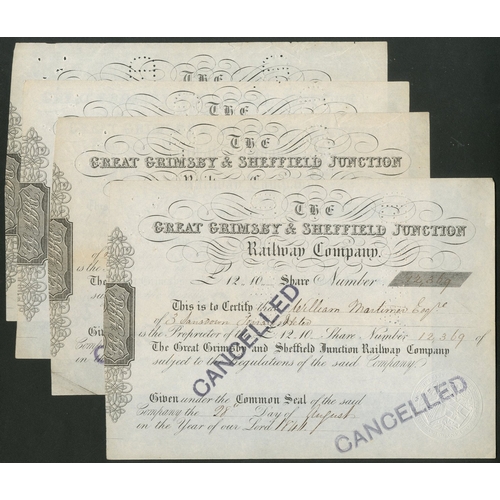 THE
THE
THE
GREAT GRIMSBY & SHEFFIELD JUNCTION
THE
GREAT GRIMSBY & SHEFFIELD JUNCTION
Railway Company.
£12.10 Share Number 12,369
This is to Certify that William Mortimer Esqre
of 3
is the Proprietor of £12.10. Share Number 12,369 of
The Great Grimsby and Sheffield Junction Railway Company
subject to the Regulations of the said Company.
Given under the Common Seal of the said
Company the 28 Day of August
in the Year of our Lord
CANCELLED
CANCELLED